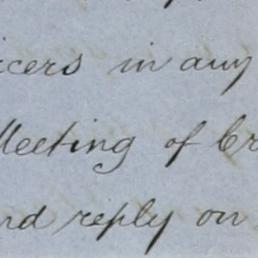 icers in any
Meeting of Cr
nd reply on